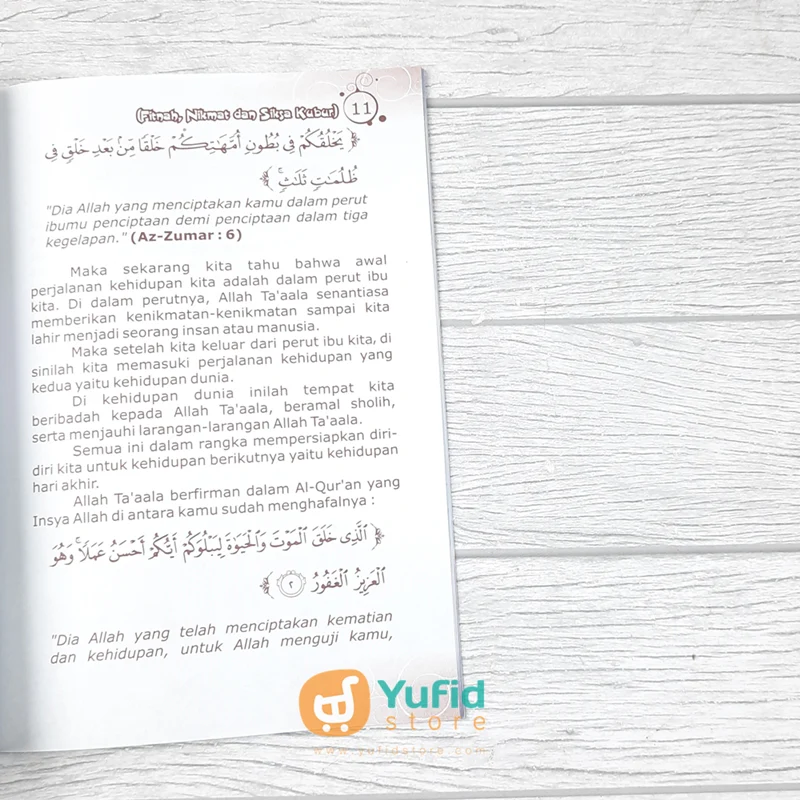 (Fitnah, Nikmat dan Siksa Kubur) 11
﴿ يَخْلُقُكُمْ فِى بُطُونِ أُمَّهَـٰتِكُمْ خَلْقًا مِّنۢ بَعْدِ خَلْقٍ فِى
ظُلُمَـٰتٍ ثَلَـٰثٍ ۚ ﴾
"Dia Allah yang menciptakan kamu dalam perut
ibumu penciptaan demi penciptaan dalam tiga
kegelapan." (Az-Zumar : 6)
Maka sekarang kita tahu bahwa awal
perjalanan kehidupan kita adalah dalam perut ibu
kita. Di dalam perutnya, Allah Ta'aala senantiasa
memberikan kenikmatan-kenikmatan sampai kita
lahir menjadi seorang insan atau manusia.
Maka setelah kita keluar dari perut ibu kita, di
sinilah kita memasuki perjalanan kehidupan yang
kedua yaitu kehidupan dunia.
Di kehidupan dunia inilah tempat kita
beribadah kepada Allah Ta'aala, beramal sholih,
serta menjauhi larangan-larangan Allah Ta'aala.
Semua ini dalam rangka mempersiapkan diri-
diri kita untuk kehidupan berikutnya yaitu kehidupan
hari akhir.
Allah Ta'aala berfirman dalam Al-Qur'an yang
Insya Allah di antara kamu sudah menghafalnya :
﴿ ٱلَّذِى خَلَقَ ٱلْمَوْتَ وَٱلْحَيَوٰةَ لِيَبْلُوَكُمْ أَيُّكُمْ أَحْسَنُ عَمَلًا ۚ وَهُوَ
ٱلْعَزِيزُ ٱلْغَفُورُ ٢ ﴾
"Dia Allah yang telah menciptakan kematian
dan kehidupan, untuk Allah menguji kamu,
Yufid
store
www.yufidstore.com